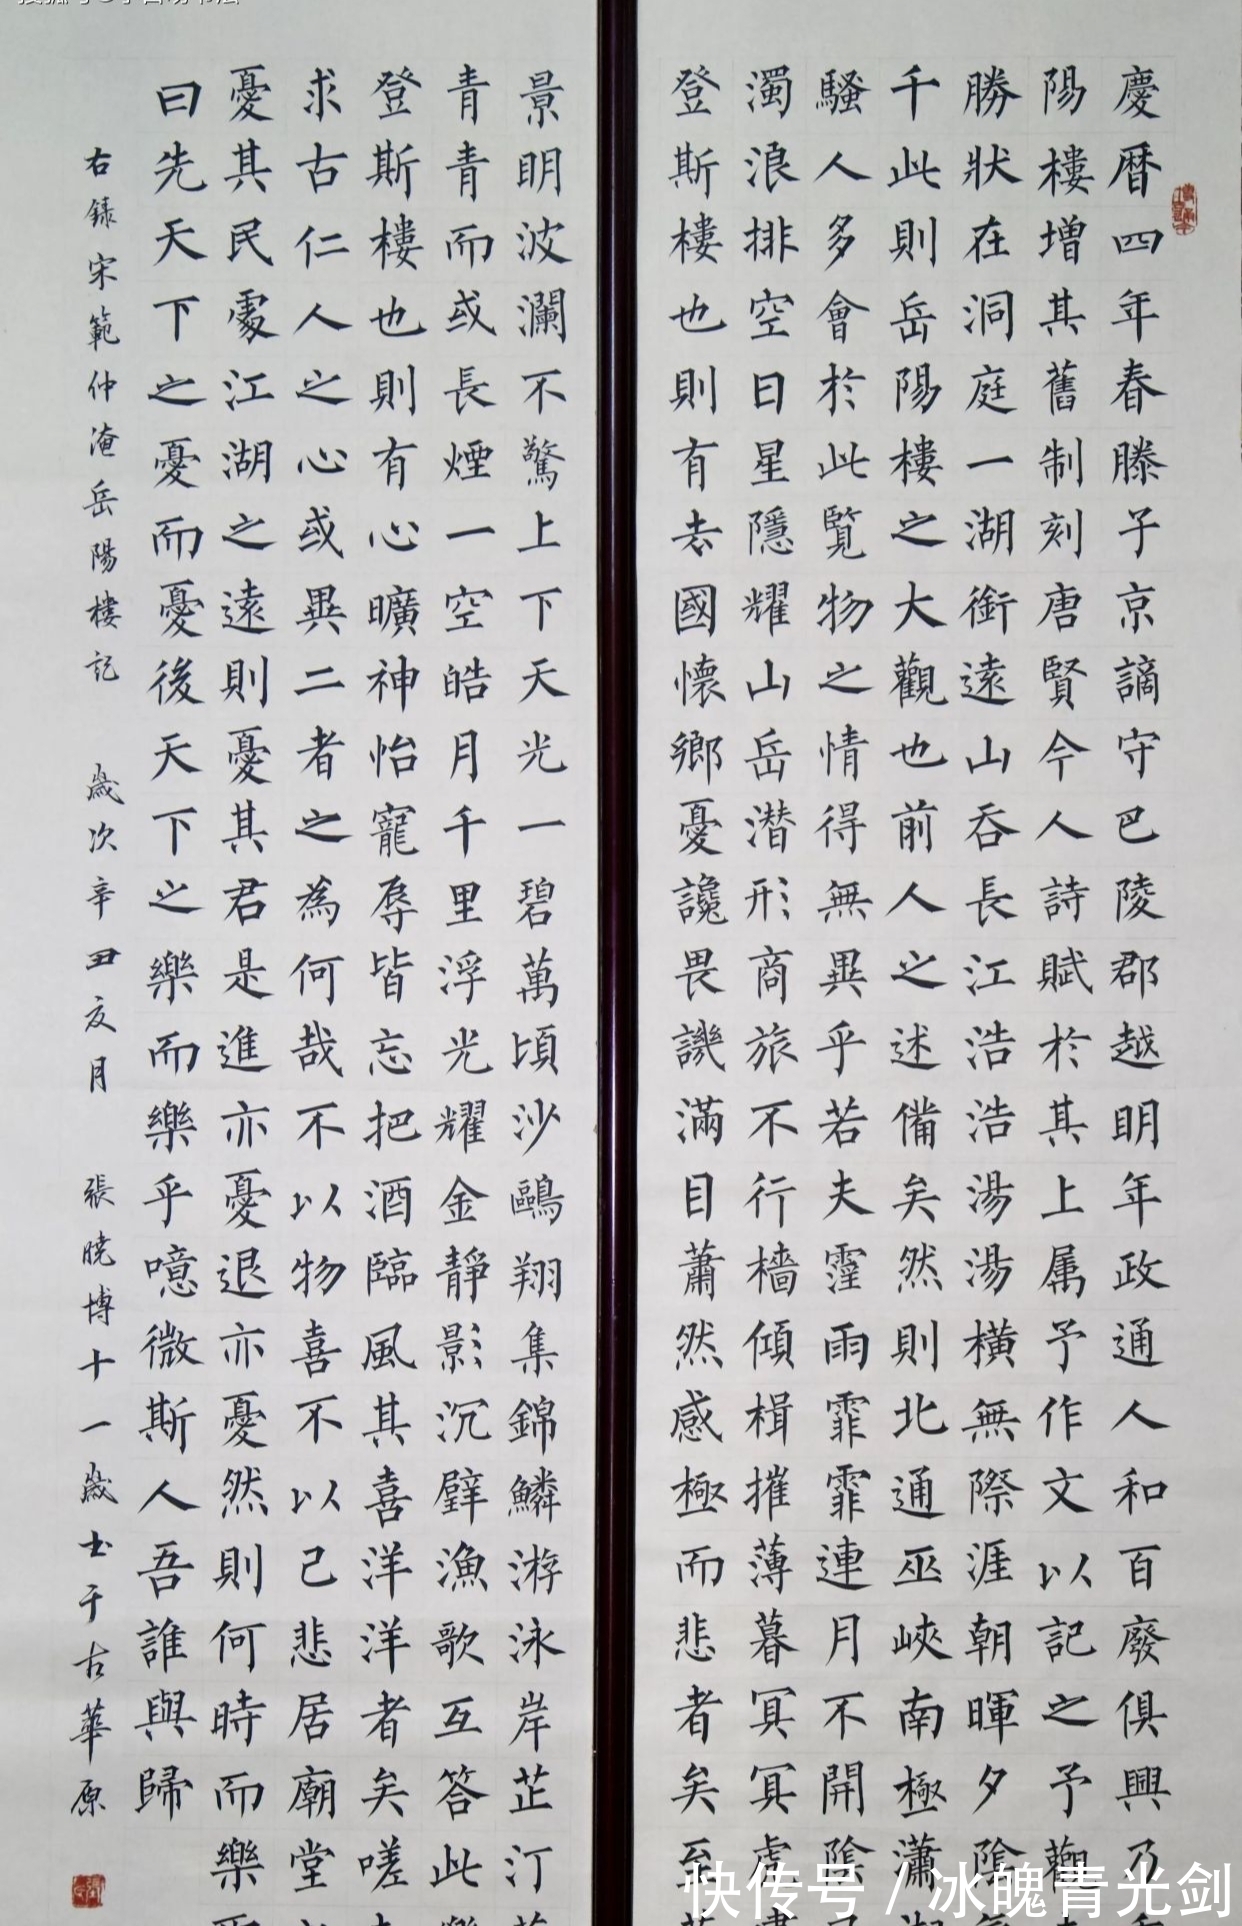 慶曆四年春滕子京謫守巴陵郡越明年政通人和百廢俱興乃
陽樓增其舊制刻唐賢今人詩賦於其上属予作文以記之予觀
勝狀在洞庭一湖銜遠山吞長江浩浩湯湯橫無際涯朝暉夕陰
千此則岳陽樓之大觀也前人之述備矣然則北通巫峽南極瀟
騷人多會於此覧物之情得無異乎若夫霪雨霏霏連月不開陰
濁浪排空日星隱耀山岳潜形商旅不行檣傾楫摧薄暮冥冥虎
登斯樓也則有去國懷鄉憂讒畏譏滿目蕭然感極而悲者矣至
景明波瀾不驚上下天光一碧萬頃沙鷗翔集錦鱗游泳岸芷汀
青青而或長煙一空皓月千里浮光耀金靜影沉璧漁歌互答此
登斯樓也則有心曠神怡寵辱皆忘把酒臨風其喜洋洋者矣嗟
求古仁人之心或異二者之為何哉不以物喜不以己悲居廟堂
憂其民處江湖之遠則憂其君是進亦憂退亦憂然則何時而樂
曰先天下之憂而憂後天下之樂而樂乎噫微斯人吾誰與歸
右錄宋範仲淹岳陽樓記 歲次辛丑友月 張曉博十一歲士于古華原
快传号/冰魄青光剑